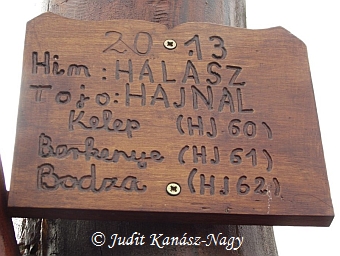 2013
Him: HALÁSZ
Tojo: HAJNAL
Kelep (HJ 60)
Berkenye (HJ 61)
Bodza (HJ 62)
© Judit Kanász-Nagy